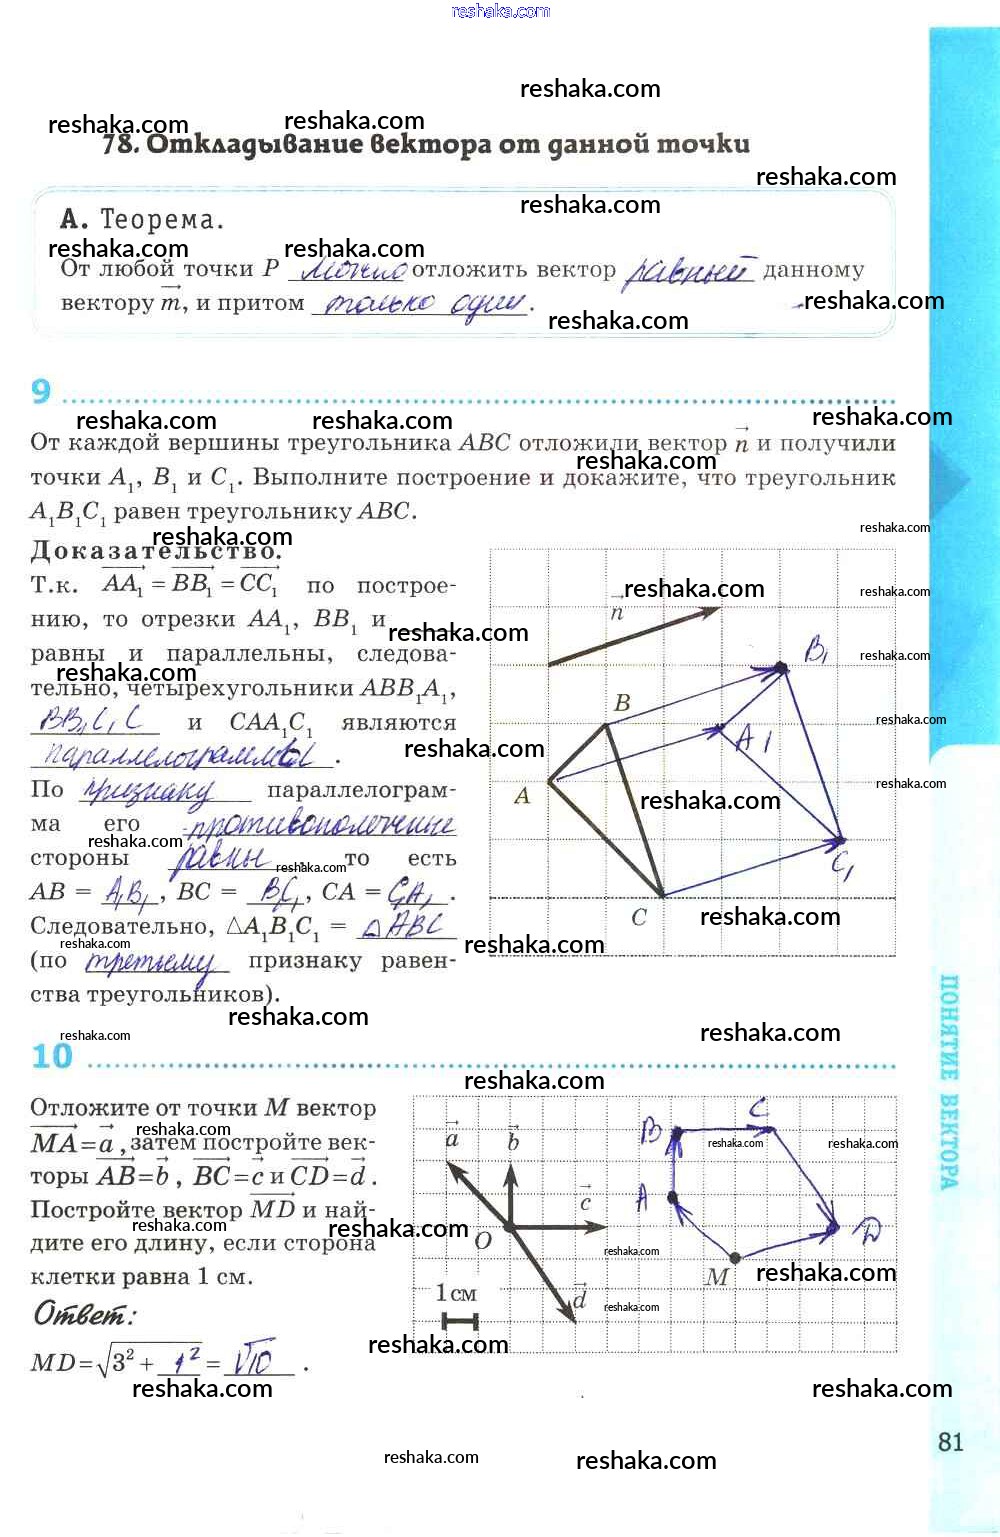 reshaka.com
reshaka.com
reshaka.com reshaka.com
78. Откладывание вектора от данной точки
reshaka.com
reshaka.com
А. Теорема.
reshaka.com reshaka.com
От любой точки P можно отложить вектор равный данному
вектору m, и притом только один.
reshaka.com
reshaka.com
9
reshaka.com reshaka.com reshaka.com
От каждой вершины треугольника ABC отложили вектор n и получили
reshaka.com
точки A1, B1 и C1. Выполните построение и докажите, что треугольник
A1B1C1 равен треугольнику ABC.
reshaka.com
reshaka.com
Доказательство.
Т.к. AA1 = BB1 = CC1 по построе-
нию, то отрезки AA1, BB1 и
reshaka.com
равны и параллельны, следова-
reshaka.com
тельно, четырехугольники ABB1A1,
BB1C1C и CAA1C1 являются
параллелограммы.
По признаку параллелограм-
ма его противоположные
стороны равны, то есть
reshaka.com
AB = A1B1, BC = B C1, CA = C1A1.
Следовательно, △A1B1C1 = △ABC
reshaka.com
(по третьему признаку равен-
ства треугольников).
reshaka.com
reshaka.com
n
reshaka.com
reshaka.com
B1
reshaka.com
B
reshaka.com
A1
reshaka.com
reshaka.com
A
reshaka.com
C1
C
reshaka.com
reshaka.com
ПОНЯТИЕ ВЕКТОРА
reshaka.com
reshaka.com
10
reshaka.com
Отложите от точки M вектор
reshaka.com
MA=a, затем постройте век-
торы AB=b, BC=c и CD=d.
Постройте вектор MD и най-
reshaka.com
дите его длину, если сторона
клетки равна 1 см.
Ответ:
MD=√3² + 1² = √10.
a b B C
reshaka.com reshaka.com
c A
O D
reshaka.com
reshaka.com
M
reshaka.com
1 см
d
reshaka.com
reshaka.com
reshaka.com reshaka.com
81
reshaka.com reshaka.com